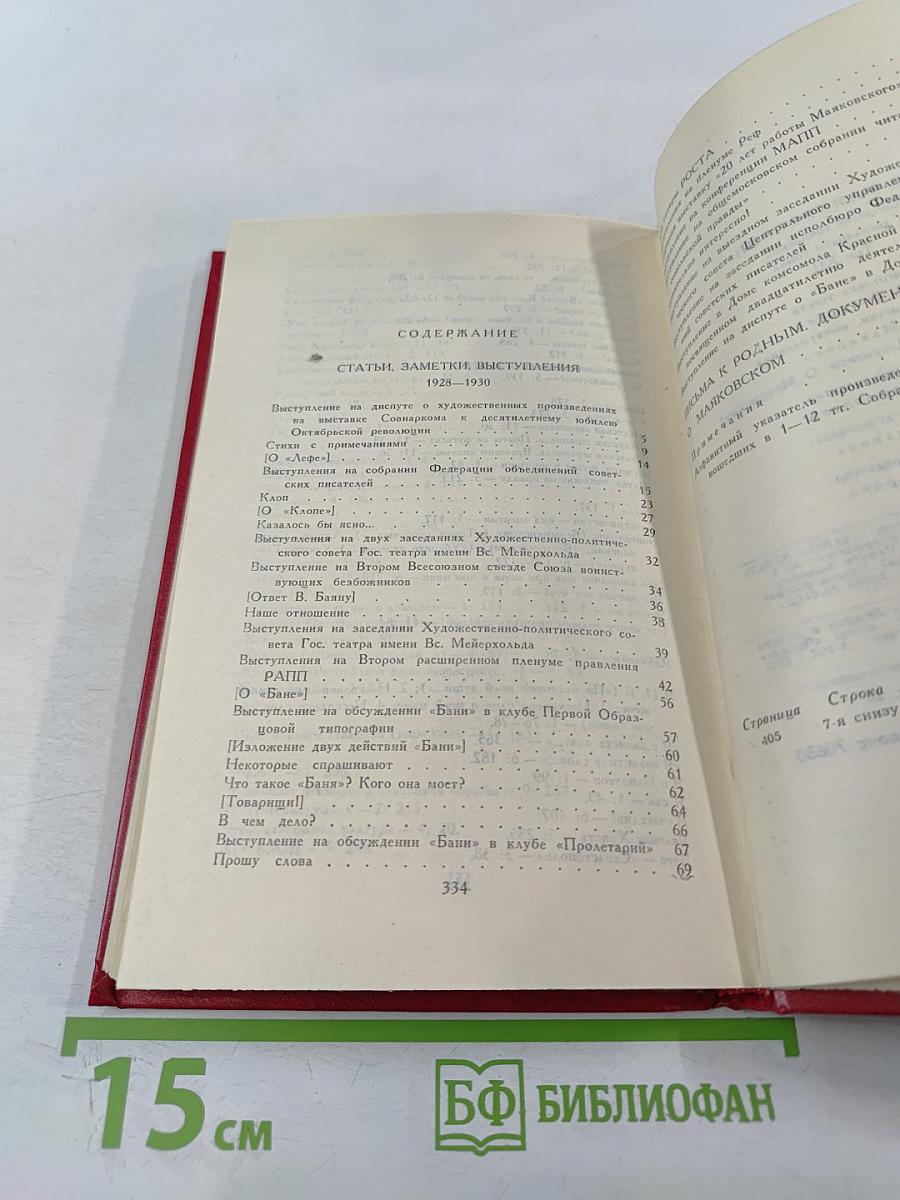 СОДЕРЖАНИЕ
СТАТЬИ, ЗАМЕТКИ, ВЫСТУПЛЕНИЯ
1928—1930
Выступление на диспуте о художественных произведениях
на выставке Совнаркома к десятилетнему юбилею
Октябрьской революции . . . . . . . . . . 5
Стихи с примечаниями . . . . . . . . . . 9
[О «Лефе»] . . . . . . . . . . 14
Выступления на собрании Федерации объединений совет-
ских писателей . . . . . . . . . . 15
Клоп . . . . . . . . . . 23
[О «Клопе»] . . . . . . . . . . 27
Казалось бы ясно... . . . . . . . . . . 29
Выступления на двух заседаниях Художественно-политиче-
ского совета Гос. театра имени Вс. Мейерхольда . . 32
Выступление на Втором Всесоюзном съезде Союза воинст-
вующих безбожников . . . . . . . . . . 34
[Ответ В. Баяну] . . . . . . . . . . 36
Наше отношение . . . . . . . . . . 38
Выступления на заседании Художественно-политического со-
вета Гос. театра имени Вс. Мейерхольда . . . . 39
Выступления на Втором расширенном пленуме правления
РАПП . . . . . . . . . . 42
[О «Бане»] . . . . . . . . . . 56
Выступление на обсуждении «Бани» в клубе Первой Образ-
цовой типографии . . . . . . . . . . 57
[Изложение двух действий «Бани»] . . . . . . . 60
Некоторые спрашивают . . . . . . . . . . 61
Что такое «Баня»? Кого она моет? . . . . . . . 62
[Товарищи!] . . . . . . . . . . 64
В чем дело? . . . . . . . . . . 66
Выступление на обсуждении «Бани» в клубе «Пролетарий» 67
Прошу слова . . . . . . . . . . 69
334
РОСТА
на пленуме Реф
выставку «20 лет работы Маяковского»
на конференции МАПП
на общемосковском собрании
правды»
интересно!
на выездном заседании
совета Центрального
на заседании исполбюро
советских писателей
в Доме комсомола Красной
посвященном двадцатилетию
на диспуте о «Бане» в
ПИСЬМА К РОДНЫМ.
О МАЯКОВСКОМ
Примечания
Алфавитный указатель
вошедших в 1—12 тт.
Страница Строка
405 7-я снизу
15 см
БФ БИБЛИОФАН